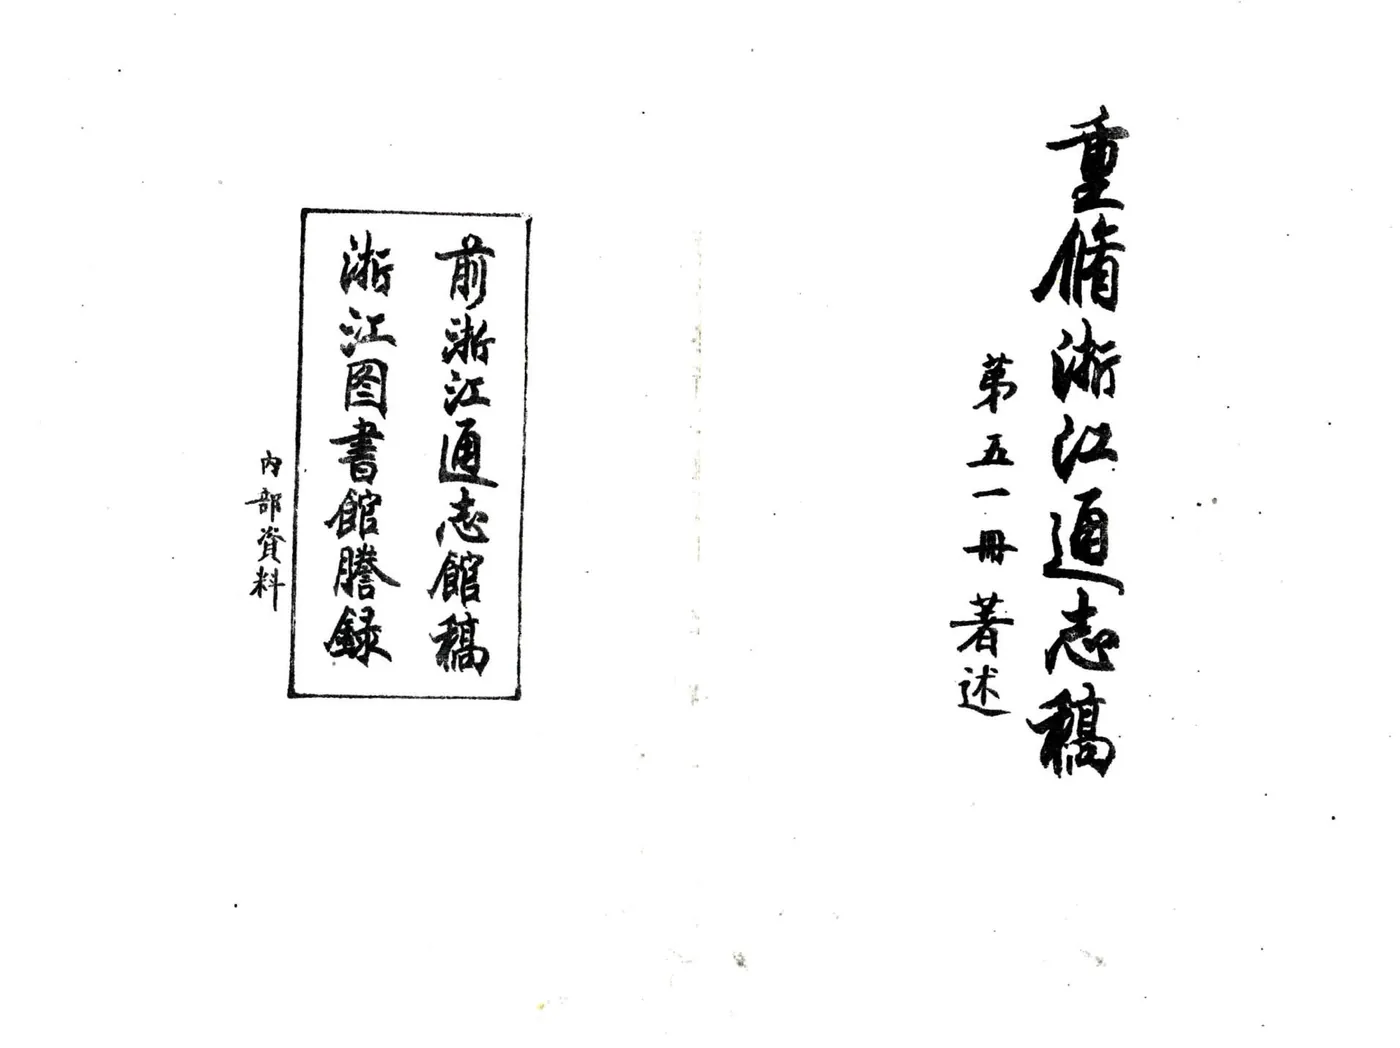 重脩浙江通志稿
第五一冊 著述
前浙江通志館稿
浙江图書館謄録
內部資料